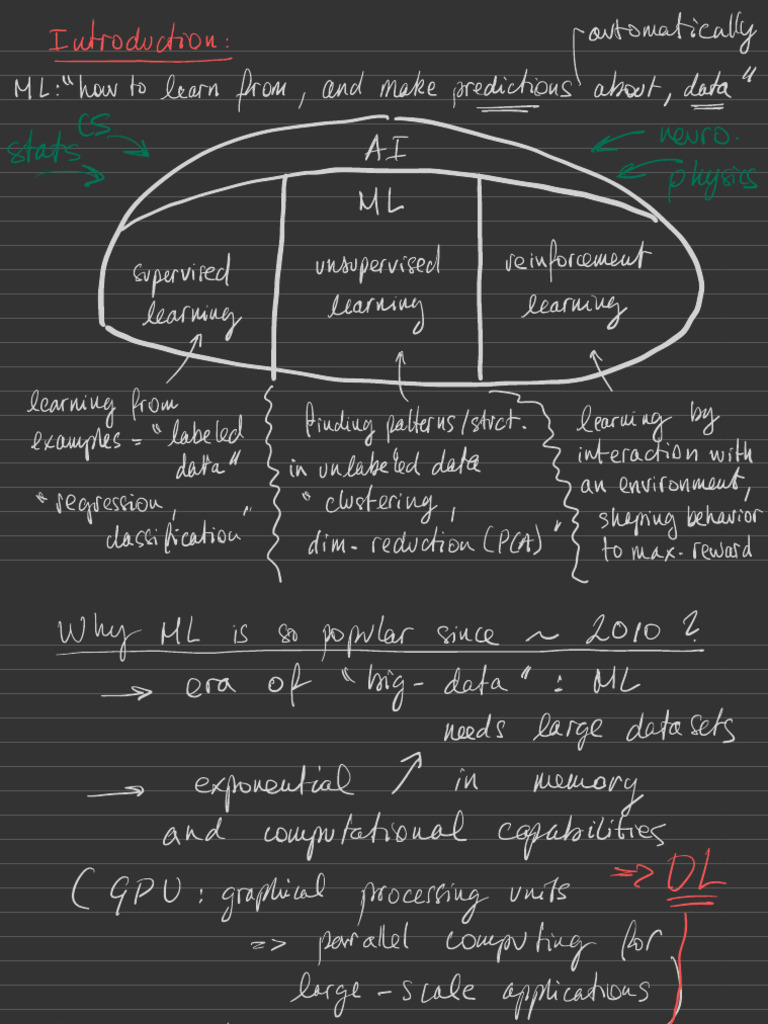 Introduction:
automatically
ML: "how to learn from, and make predictions about, data"
CS
stats
neuro.
physics
AI
ML
supervised
learning
unsupervised
learning
reinforcement
learning
learning from
examples = "labeled
data"
"regression,
classification"
finding patterns/struct.
in unlabeled data
"clustering,
dim-reduction (PCA)"
learning by
interaction with
an environment,
shaping behavior
to max. reward
Why ML is so popular since ~ 2010 ?
→ era of "big-data" : ML
needs large datasets
→ exponential ↗ in memory
and computational capabilities
(GPU : graphical processing units
=> DL
=> parallel computing for
large-scale applications)